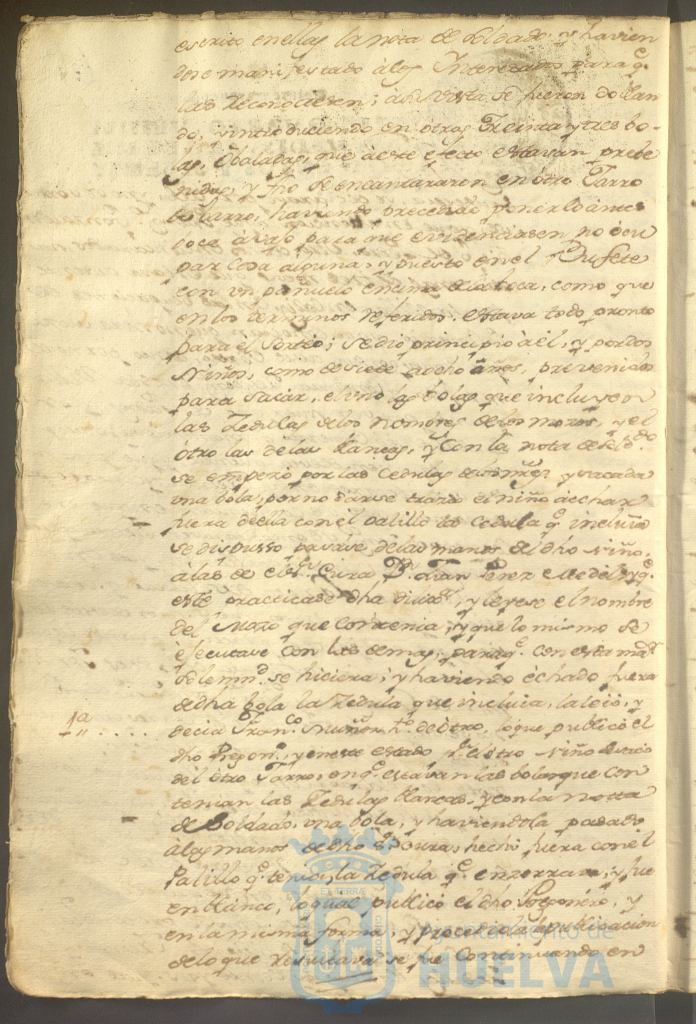 escrito en ellas la nota de soldado, y havien
dose manifestado â los Interesados para q.e
las reconociesen; â su vista se fueron doblan
do, è introduciendo en otras treinta y tres bo-
las, Obaladas, que a este efecto estavan preve
nidas; y se encantararon en otro Jarro
haviendo precedido ponerlo antes
boca avajo para que evidenciasen no ocu
par cosa alguna, y puesto en el Bufete
con un pañuelo encima de la boca, como que
en los terminos referidos estava todo pronto
para el sorteo; se dio principio à èl, y por dos
Niños, como de siete a ocho años, prevenidos
para sacar, el uno las bolas que incluyen
las Zedulas de los nombres de los mozos, y el
otro las de las blancas, y con la nota de sol.do
se empezo por las Cedulas de nombres y sacada
una bola, por no darse traza el niño a echar
fuera de ella con el palillo la Cedula q.e incluia
se dispusso pasase de las manos del dho niño,
â las de el S.r Cura D.n Juan Perez p.a q.e
este practicase dha dilix.a, y leyese el nombre
del Mozo que contenia, y que lo mismo se
ejecutase con las demas, para q.e con esta m.or
solemn.d se hiciera; y haviendo echado fuera
de dha bola la Zedula que incluia, la leió, y
decia Fran.co Nuñez h.o de otro, lo que publicó el
1.a .... dho Pregon.o, y en este estado el otro Niño saco
del otro Jarro, en q.e estavan las bolas que con
tenian las Zedulas blancas, y con la notta
de Soldado, una bola, y haviendola pasado
â las manos de dho S.r Cura, hechó fuera con el
Palillo q.e tenia, la Zedula q.e enzerrava, y fue
en blanco, lo qual publicó el dho Pregonero, y
en la misma forma, y procedida la publicacion
de lo que resultava se fue continuando en
Ayuntamiento de
HUELVA